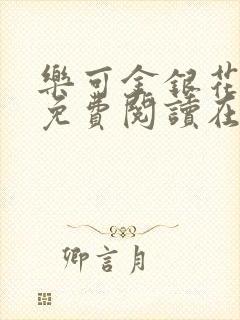 樂可金銀花
免費閱讀在
卿言月